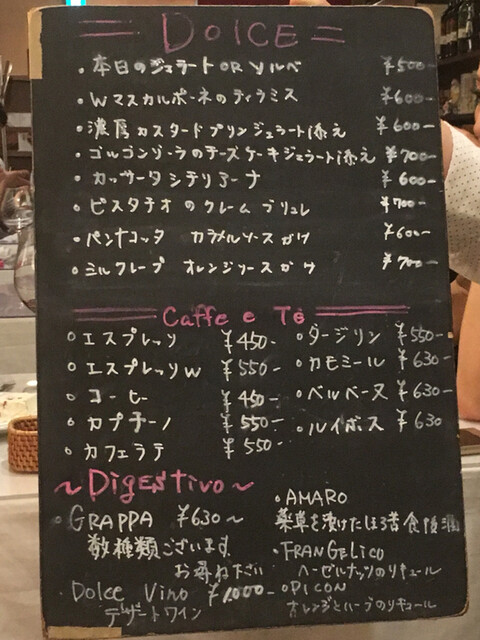 DOLCE
・本日のジェラートOR ソルベ ¥500-
・Wマスカルポーネのティラミス ¥600-
・濃厚カスタードプリンジェラート添え ¥600-
・ゴルゴンゾーラのチーズケーキジェラート添え ¥700-
・カッサータシチリアーナ ¥600-
・ピスタチオのクレームブリュレ ¥700-
・パンナコッタ カラメルソースがけ ¥600-
・ミルクレープ オレンジソースがけ ¥700-
Caffe e Tè
・エスプレッソ ¥450-
・エスプレッソW ¥550-
・コーヒー ¥450-
・カプチーノ ¥550-
・カフェラテ ¥550-
・ダージリン ¥550-
・カモミール ¥630-
・ベルベーヌ ¥630-
・ルイボス ¥630
~Digestivo~
・GRAPPA ¥630~
数種類ございます
お尋ね下さい
・Dolce Vino ¥1,000-
デザートワイン
・AMARO
薬草を漬けたほろ苦食後酒
・FRANGELICO
ヘーゼルナッツのリキュール
・PICON
オレンジとハーブのリキュール